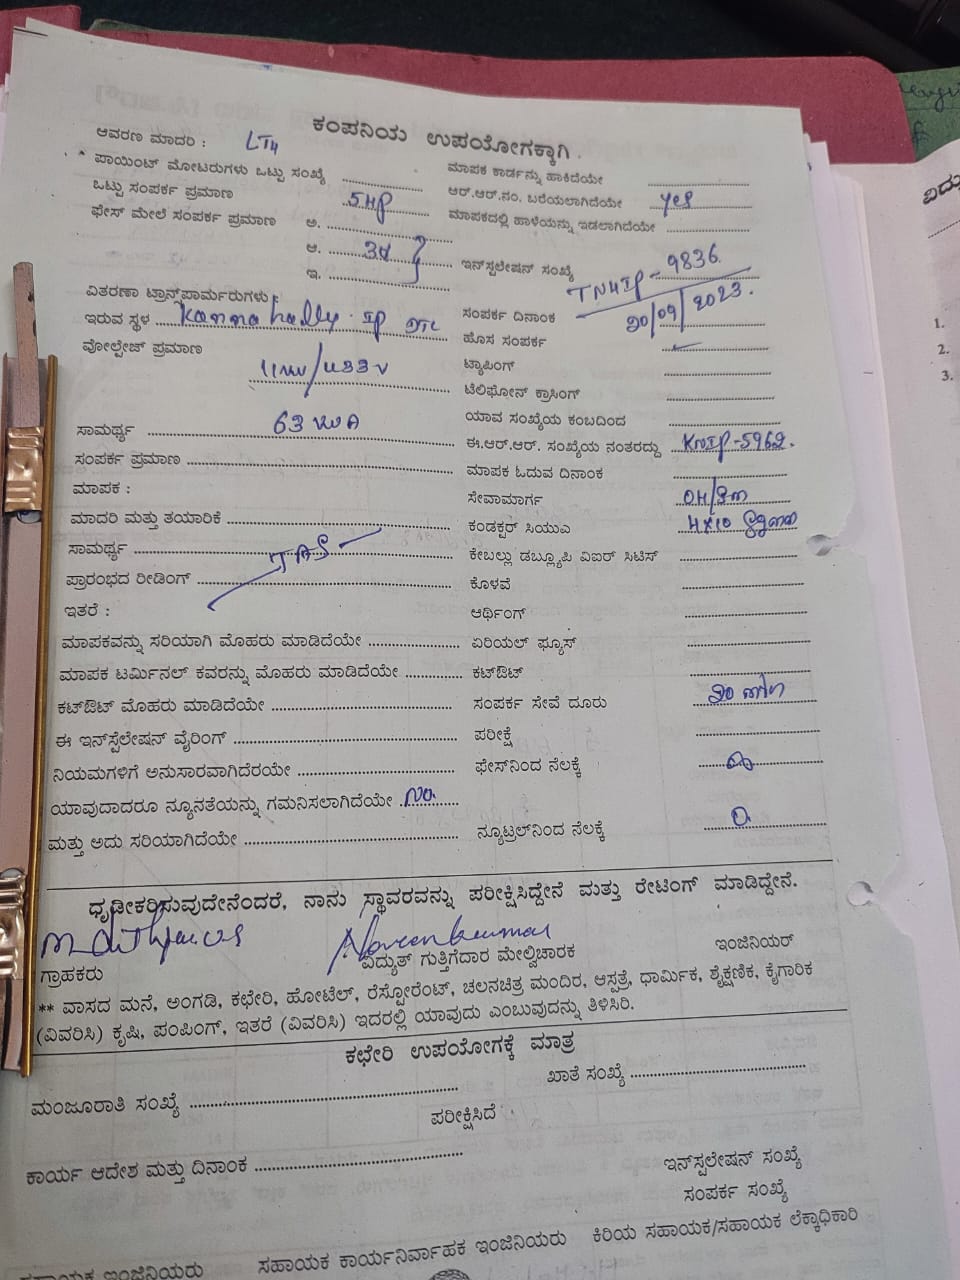 ಕಂಪನಿಯ ಉಪಯೋಗಕ್ಕಾಗಿ.
ಆವರಣ ಮಾದರಿ : LT4
ಪಾಯಿಂಟ್ ಮೋಟರುಗಳು ಒಟ್ಟು ಸಂಖ್ಯೆ ........ ಮಾಪಕ ಕಾರ್ಡನ್ನು ಹಾಕಿದೆಯೇ ........
ಒಟ್ಟು ಸಂಪರ್ಕ ಪ್ರಮಾಣ 5HP ಆರ್.ಆರ್.ನಂ. ಬರೆಯಲಾಗಿದೆಯೇ yes
ಫೇಸ್ ಮೇಲೆ ಸಂಪರ್ಕ ಪ್ರಮಾಣ ಅ. ........ ಮಾಪಕದಲ್ಲಿ ಹಾಳೆಯನ್ನು ಇಡಲಾಗಿದೆಯೇ ........
ಆ. ........
ಇ. ........ ಇನ್ಸ್ಟಲೇಷನ್ ಸಂಖ್ಯೆ TNHIP-9836
ವಿತರಣಾ ಟ್ರಾನ್ಸ್‌ಫಾರ್ಮರುಗಳು
ಇರುವ ಸ್ಥಳ Kannahally IP ಸಂಪರ್ಕ ದಿನಾಂಕ 20/09/2023.
ವೋಲ್ಟೇಜ್ ಪ್ರಮಾಣ 11KV/433V ಹೊಸ ಸಂಪರ್ಕ
ಟ್ಯಾಪಿಂಗ್ ........
ಟೆಲಿಫೋನ್ ಕ್ರಾಸಿಂಗ್ ........
ಯಾವ ಸಂಖ್ಯೆಯ ಕಂಬದಿಂದ ........
ಸಾಮರ್ಥ್ಯ 63 KVA ಈ.ಆರ್.ಆರ್. ಸಂಖ್ಯೆಯ ನಂತರದ್ದು KNIP-5962.
ಸಂಪರ್ಕ ಪ್ರಮಾಣ ........ ಮಾಪಕ ಓದುವ ದಿನಾಂಕ ........
ಮಾಪಕ : ಸೇವಾಮಾರ್ಗ OH/Sm
ಮಾದರಿ ಮತ್ತು ತಯಾರಿಕೆ ........ ಕಂಡಕ್ಟರ್ ಸಿಯುಎ 4x10
ಸಾಮರ್ಥ್ಯ ........ ಕೇಬಲ್ಲು ಡಬ್ಲ್ಯೂಪಿ ವಿಐರ್ ಸಿಟಿಸ್ ........
ಪ್ರಾರಂಭದ ರೀಡಿಂಗ್ ........ ಕೊಳವೆ ........
ಇತರೆ : ಆರ್ಥಿಂಗ್ ........
ಮಾಪಕವನ್ನು ಸರಿಯಾಗಿ ಮೊಹರು ಮಾಡಿದೆಯೇ ........ ಏರಿಯಲ್ ಫ್ಯೂಸ್ ........
ಮಾಪಕ ಟರ್ಮಿನಲ್ ಕವರನ್ನು ಮೊಹರು ಮಾಡಿದೆಯೇ ........ ಕಟ್‌ಔಟ್ ........
ಕಟ್‌ಔಟ್ ಮೊಹರು ಮಾಡಿದೆಯೇ ........ ಸಂಪರ್ಕ ಸೇವೆ ದೂರು 20
ಈ ಇನ್‌ಸ್ಟಲೇಷನ್ ವೈರಿಂಗ್ ........ ಪರೀಕ್ಷೆ ........
ನಿಯಮಗಳಿಗೆ ಅನುಸಾರವಾಗಿದೆರಯೇ ........ ಫೇಸ್‌ನಿಂದ ನೆಲಕ್ಕೆ
ಯಾವುದಾದರೂ ನ್ಯೂನತೆಯನ್ನು ಗಮನಿಸಲಾಗಿದೆಯೇ No.
ಮತ್ತು ಅದು ಸರಿಯಾಗಿದೆಯೇ ........ ನ್ಯೂಟ್ರಲ್‌ನಿಂದ ನೆಲಕ್ಕೆ 0.
ಧೃಡೀಕರಿಸುವುದೇನೆಂದರೆ, ನಾನು ಸ್ಥಾವರವನ್ನು ಪರೀಕ್ಷಿಸಿದ್ದೇನೆ ಮತ್ತು ರೇಟಿಂಗ್ ಮಾಡಿದ್ದೇನೆ.
Naveenkumar
ಗ್ರಾಹಕರು ವಿದ್ಯುತ್ ಗುತ್ತಿಗೆದಾರ ಮೇಲ್ವಿಚಾರಕ ಇಂಜಿನಿಯರ್
** ವಾಸದ ಮನೆ, ಅಂಗಡಿ, ಕಛೇರಿ, ಹೋಟೆಲ್, ರೆಸ್ಟೋರೆಂಟ್, ಚಲನಚಿತ್ರ ಮಂದಿರ, ಆಸ್ಪತ್ರೆ, ಧಾರ್ಮಿಕ, ಶೈಕ್ಷಣಿಕ, ಕೈಗಾರಿಕ
(ವಿವರಿಸಿ) ಕೃಷಿ, ಪಂಪಿಂಗ್, ಇತರೆ (ವಿವರಿಸಿ) ಇದರಲ್ಲಿ ಯಾವುದು ಎಂಬುವುದನ್ನು ತಿಳಿಸಿರಿ.
ಕಛೇರಿ ಉಪಯೋಗಕ್ಕೆ ಮಾತ್ರ
ಮಂಜೂರಾತಿ ಸಂಖ್ಯೆ ........ ಖಾತೆ ಸಂಖ್ಯೆ ........
ಪರೀಕ್ಷಿಸಿದೆ
ಕಾರ್ಯ ಆದೇಶ ಮತ್ತು ದಿನಾಂಕ ........ ಇನ್ಸ್ಟಲೇಷನ್ ಸಂಖ್ಯೆ
ಸಂಪರ್ಕ ಸಂಖ್ಯೆ
ಇಂಜಿನಿಯರು ಸಹಾಯಕ ಕಾರ್ಯನಿರ್ವಾಹಕ ಇಂಜಿನಿಯರು ಕಿರಿಯ ಸಹಾಯಕ/ಸಹಾಯಕ ಲೆಕ್ಕಾಧಿಕಾರಿ
1.
2.
3.